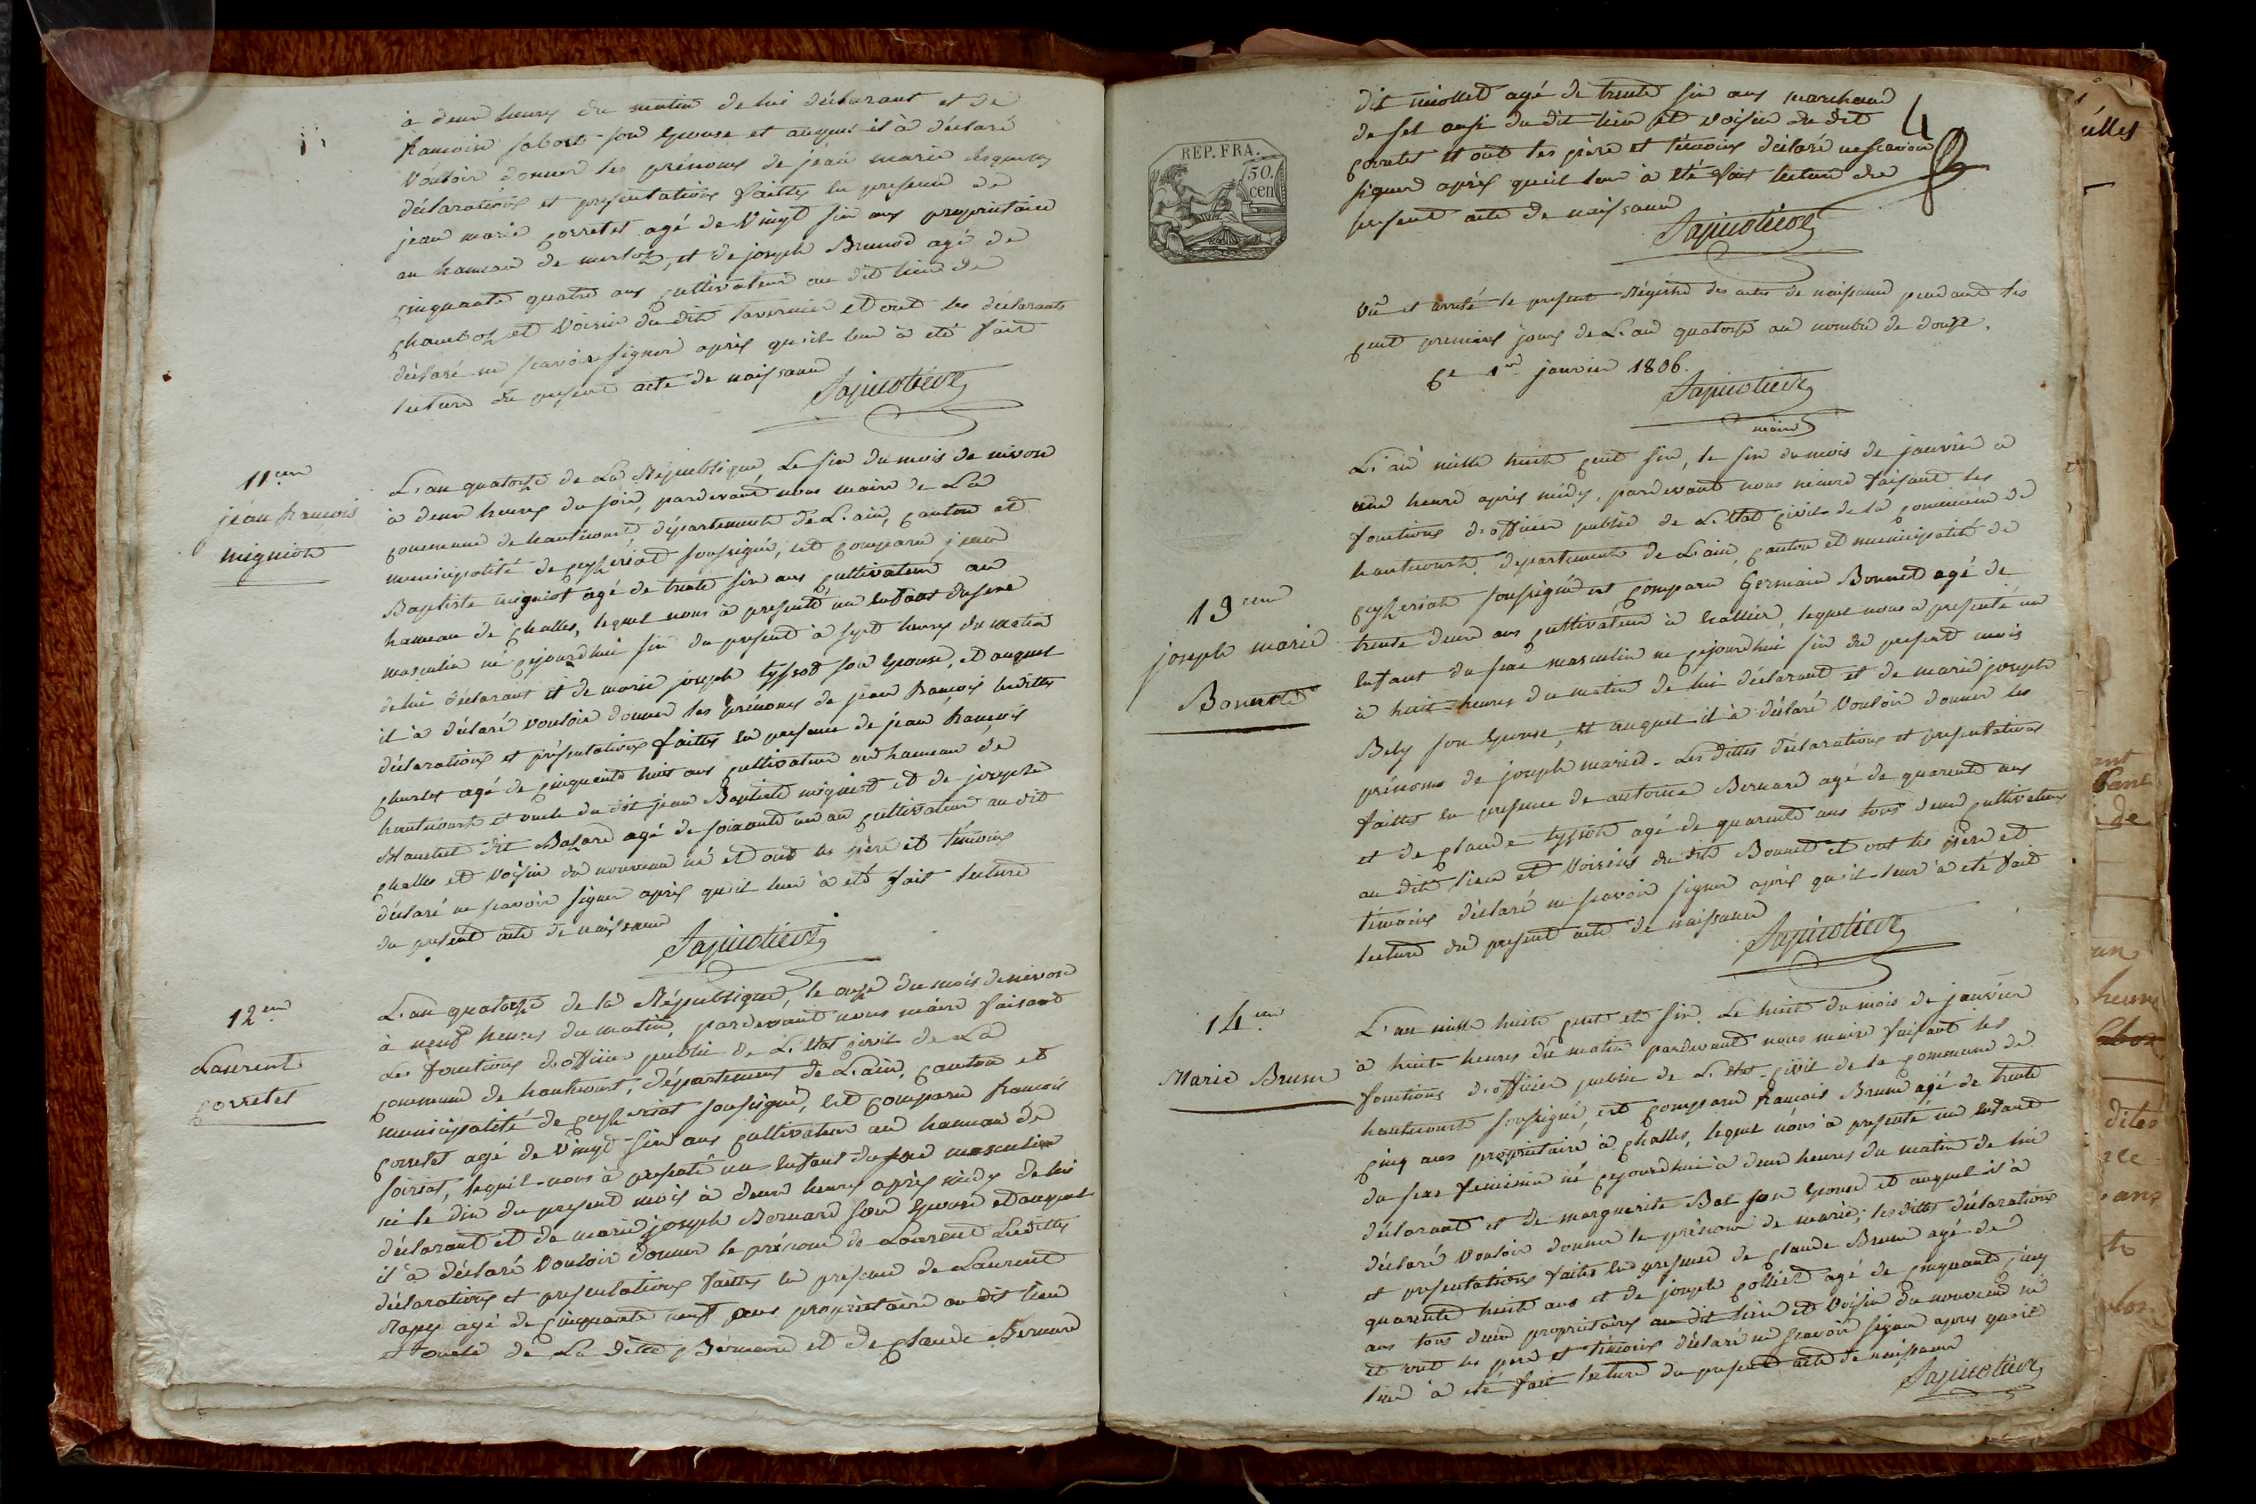 à deux heures du matin de lui déclarant et de
francoise sabort son Epouse et auquel il à déclaré
Vouloir donner les prénoms de jéan marie lesquelles
déclarations et presentations faittes en presence de
jean marie corretet agé de Vingt six ans propriétaire
au hameau de merloz, et de joseph Brunod agé de
cinquante quatre ans cultivateur au dit lieu de
chamboz et Voisin du dit tavernier et ont les déclarants
déclaré ne scavoir signer après qu'il leur à eté fait
lecture du présent acte de naissance
11.em
jéan francois
mignioth
L'an quatorze de La République Le six du mois de nivose
à deux heures du soir, pardevant nous maire de La
commune de hautecourt, département de L'ain, canton et
municipalité de ceyzériat soussigné, est comparu jean
Baptiste migniot agé de trente six ans, cultivateur au
hameau de challes, lequel nous à presenté un Enfant du sexe
masculin né cejourdhui six du présent à sept heures du matin
de lui déclarant et de marie joseph tyssot son Epouse, et auquel
il à déclaré vouloir donner les prénoms de jean francois lesdittes
déclarations et présentations faittes en presence de jean francois
charles agé de cinquante huit ans cultivateur au hameau de
hautecourt et oncle du dit jean Baptiste migniot et de joseph
Blanchet dit Bazard agé de soixante un an cultivateur au dit
challes et Voisin du nouveau né et ont les père et témoins
déclaré ne scavoir signer après qu'il leur à eté fait lecture
du présent acte de naissance
12.em
Laurent
corretet
L'an quatorze de la République, le onze du mois de nivose
à neuf heures du matin, pardevant nous maire faisant
Les fonctions d'officier public de L'Etat civil de La
commune de hautecourt, département de L'ain, canton et
municipalité de ceyzeriat soussigné, est comparu francois
corretet agé de Vingt six ans cultivateur au hameau de
soiriat, lequel nous à présenté un Enfant du sexe masculin
né le dix du present mois à deux heures après midy de lui
déclarant et de marie joseph Bernard son Epouse et auquel
il à déclaré Vouloir donner le prénom de Laurent Lesdittes
déclarations et presentations faittes en presence de Laurent
Rapy agé de cinquante neuf ans propriétaire au dit lieu
et oncle de La ditte Bernard et de claude Bernard
REP. FRA.
50.
cen
4
dit miollet agé de trente six ans marchand
de sel aussi du dit lieu et voisin du dit
corretet et ont les père et témoins déclaré ne scavoir
signer après qu'il leur à eté fait lecture du
present acte de naissance
Vu et arreté le présent Régistre des actes de naissance pendant les
cent premiers jours de L'an quatorze au nombre de douze.
Ce 1er janvier 1806.
maire
13 em
joseph marie
Bonnet
L'an mille huit cent six, le six du mois de janvier à
une heure après midy, pardevant nous maire faisant les
fonctions d'officier public de L'Etat civil de la commune de
hautecourt, departement de L'ain, canton et municipalité de
ceyzeriat soussigné est comparu Germain Bonnet agé de
trente deux ans cultivateur à hallier, lequel nous a presenté un
Enfant du sexe masculin né cejourdhui six du present mois
à huit heures du matin de lui déclarant et de marie joseph
Bely son Epouse, et auquel il à déclaré Vouloir donner les
prénoms de joseph marie. Les dittes déclarations et presentations
faittes en presence de antoine Bernard agé de quarente ans
et de claude tyssot agé de quarente ans tous deux cultivateurs
au dit lieu et Voisins du dit Bonnet et ont les père et
témoins déclaré ne scavoir signer après qu'il leur à eté fait
lecture du present acte de naissance
14.em
Marie Brun
L'an mille huit cent et six. Le huit du mois de janvier
à huit heures du matin pardevant nous maire faisant les
fonctions d'officier public de L'Etat civil de la commune de
hautecourt soussigné, est comparu francois Brun agé de trente
cinq ans propriétaire à challes, lequel nous à presenté un Enfant
du sexe feminin né cejourdhui à deux heures du matin de lui
déclarant et de marguerite Bal son Epouse et auquel il à
déclaré Vouloir donner le prénom de marie; lesdittes déclarations
et presentations faites en presence de claude Brun agé de
quarente huit ans et de joseph colliet agé de cinquante cinq
ans tous deux propriétaires au dit lieu et Voisin du nouveau né
et ont les père et témoins déclaré ne scavoir signer apres qu'il
leur à eté fait lecture du present acte de naissance